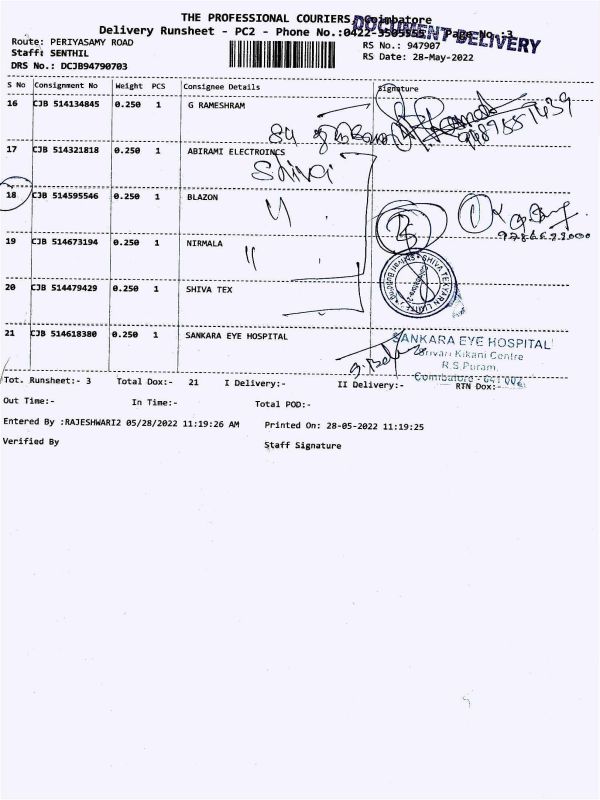 THE PROFESSIONAL COURIERS, Coimbatore
Delivery Runsheet - PC2 - Phone No.:0422-3505555 Page No.:3
DOCUMENT DELIVERY
Route: PERIYASAMY ROAD
Staff: SENTHIL
DRS No.: DCJB94790703
RS No.: 947907
RS Date: 28-May-2022
S No Consignment No Weight PCS Consignee Details Signature
16 CJB 514134845 0.250 1 G RAMESHRAM
17 CJB 514321818 0.250 1 ABIRAMI ELECTROINCS
Shivai
18 CJB 514595546 0.250 1 BLAZON
19 CJB 514673194 0.250 1 NIRMALA
20 CJB 514479429 0.250 1 SHIVA TEX
SHIVA TEXYARN LIMITED
21 CJB 514618380 0.250 1 SANKARA EYE HOSPITAL
SANKARA EYE HOSPITAL
Srivari Kikani Centre
R.S.Puram,
Coimbatore - 641 002.
Tot. Runsheet:- 3 Total Dox:- 21 I Delivery:- II Delivery:- RTN Dox:-
Out Time:- In Time:- Total POD:-
Entered By :RAJESHWARI2 05/28/2022 11:19:26 AM Printed On: 28-05-2022 11:19:25
Verified By Staff Signature